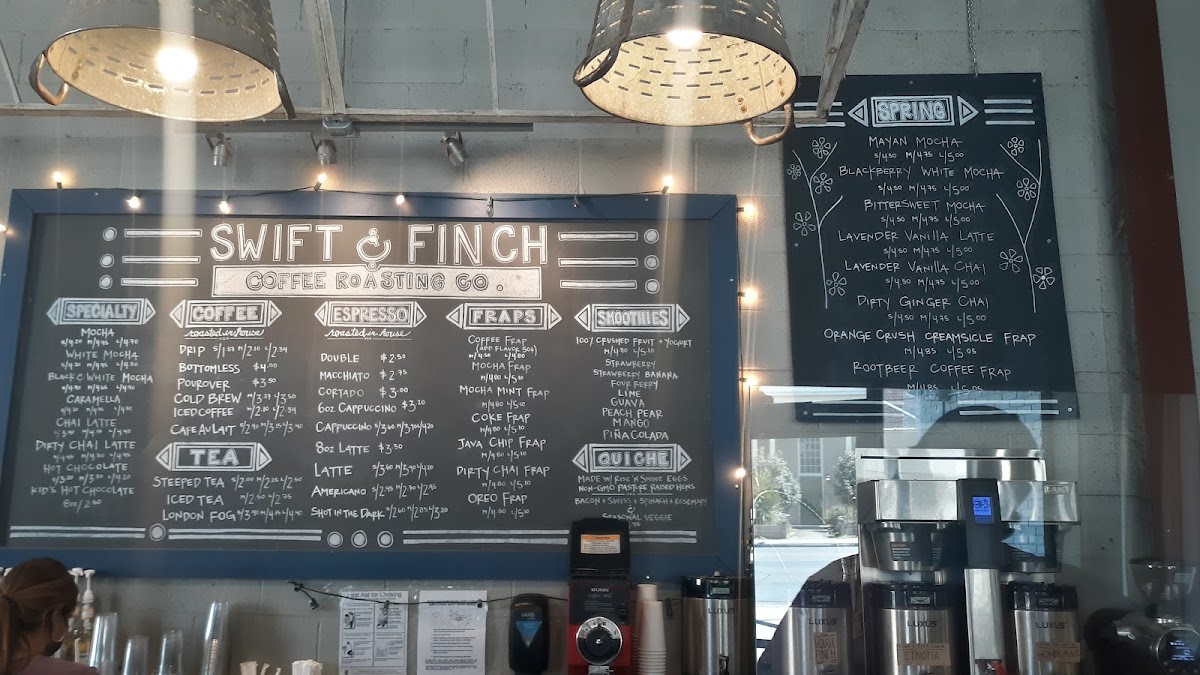 SWIFT & FINCH
COFFEE ROASTING CO.
SPECIALTY
MOCHA
WHITE MOCHA
BLACK & WHITE MOCHA
CARAMELLA
CHAI LATTE
DIRTY CHAI LATTE
HOT CHOCOLATE
KID'S HOT CHOCOLATE
8oz/2.80
COFFEE
roasted in house
DRIP S/1.87 M/2.10 L/2.34
BOTTOMLESS $4.00
POUROVER $3.50
COLD BREW M/3.27 L/3.50
ICED COFFEE M/2.10 L/2.34
CAFE AU LAIT S/2.90 M/3.15 L/3.40
TEA
STEEPED TEA S/2.00 M/2.25 L/2.50
ICED TEA M/2.50 L/2.75
LONDON FOG S/3.90 M/4.15 L/4.40
ESPRESSO
roasted in house
DOUBLE $2.50
MACCHIATO $2.75
CORTADO $3.00
6oz CAPPUCCINO $3.20
CAPPUCCINO S/3.60 M/3.90 L/4.20
8oz LATTE $3.30
LATTE S/3.60 M/3.90 L/4.20
AMERICANO S/2.45 M/2.70 L/2.95
SHOT IN THE DARK S/2.60 M/2.85 L/3.20
FRAPS
COFFEE FRAP
(ADD FLAVOR 50¢)
M/4.50 L/4.80
MOCHA FRAP
M/4.80 L/5.10
MOCHA MINT FRAP
M/4.80 L/5.10
COKE FRAP
M/4.80 L/5.10
JAVA CHIP FRAP
M/4.80 L/5.10
DIRTY CHAI FRAP
M/4.80 L/5.10
OREO FRAP
M/4.80 L/5.10
SMOOTHIES
100% CRUSHED FRUIT + YOGURT
M/4.80 L/5.10
STRAWBERRY
STRAWBERRY BANANA
FOUR BERRY
LIME
GUAVA
PEACH PEAR
MANGO
PIÑA COLADA
QUICHE
MADE W/ RISE 'N SHINE EGGS
NON-GMO PASTURE RAISED HENS
BACON + SWISS + SPINACH + ROSEMARY
&
SEASONAL VEGGIE
SPRING
MAYAN MOCHA
S/4.50 M/4.75 L/5.00
BLACKBERRY WHITE MOCHA
S/4.50 M/4.75 L/5.00
BITTERSWEET MOCHA
S/4.50 M/4.75 L/5.00
LAVENDER VANILLA LATTE
S/4.50 M/4.75 L/5.00
LAVENDER VANILLA CHAI
S/4.50 M/4.75 L/5.00
DIRTY GINGER CHAI
S/4.50 M/4.75 L/5.00
ORANGE CRUSH CREAMSICLE FRAP
M/4.85 L/5.05
ROOTBEER COFFEE FRAP
M/4.85 L/5.05
First Aid for Choking
BUNN
LUXUS
LUXUS
HOUSE
FINCH
LUXUS
ETHIOPIA
LUXUS
HONDURAS